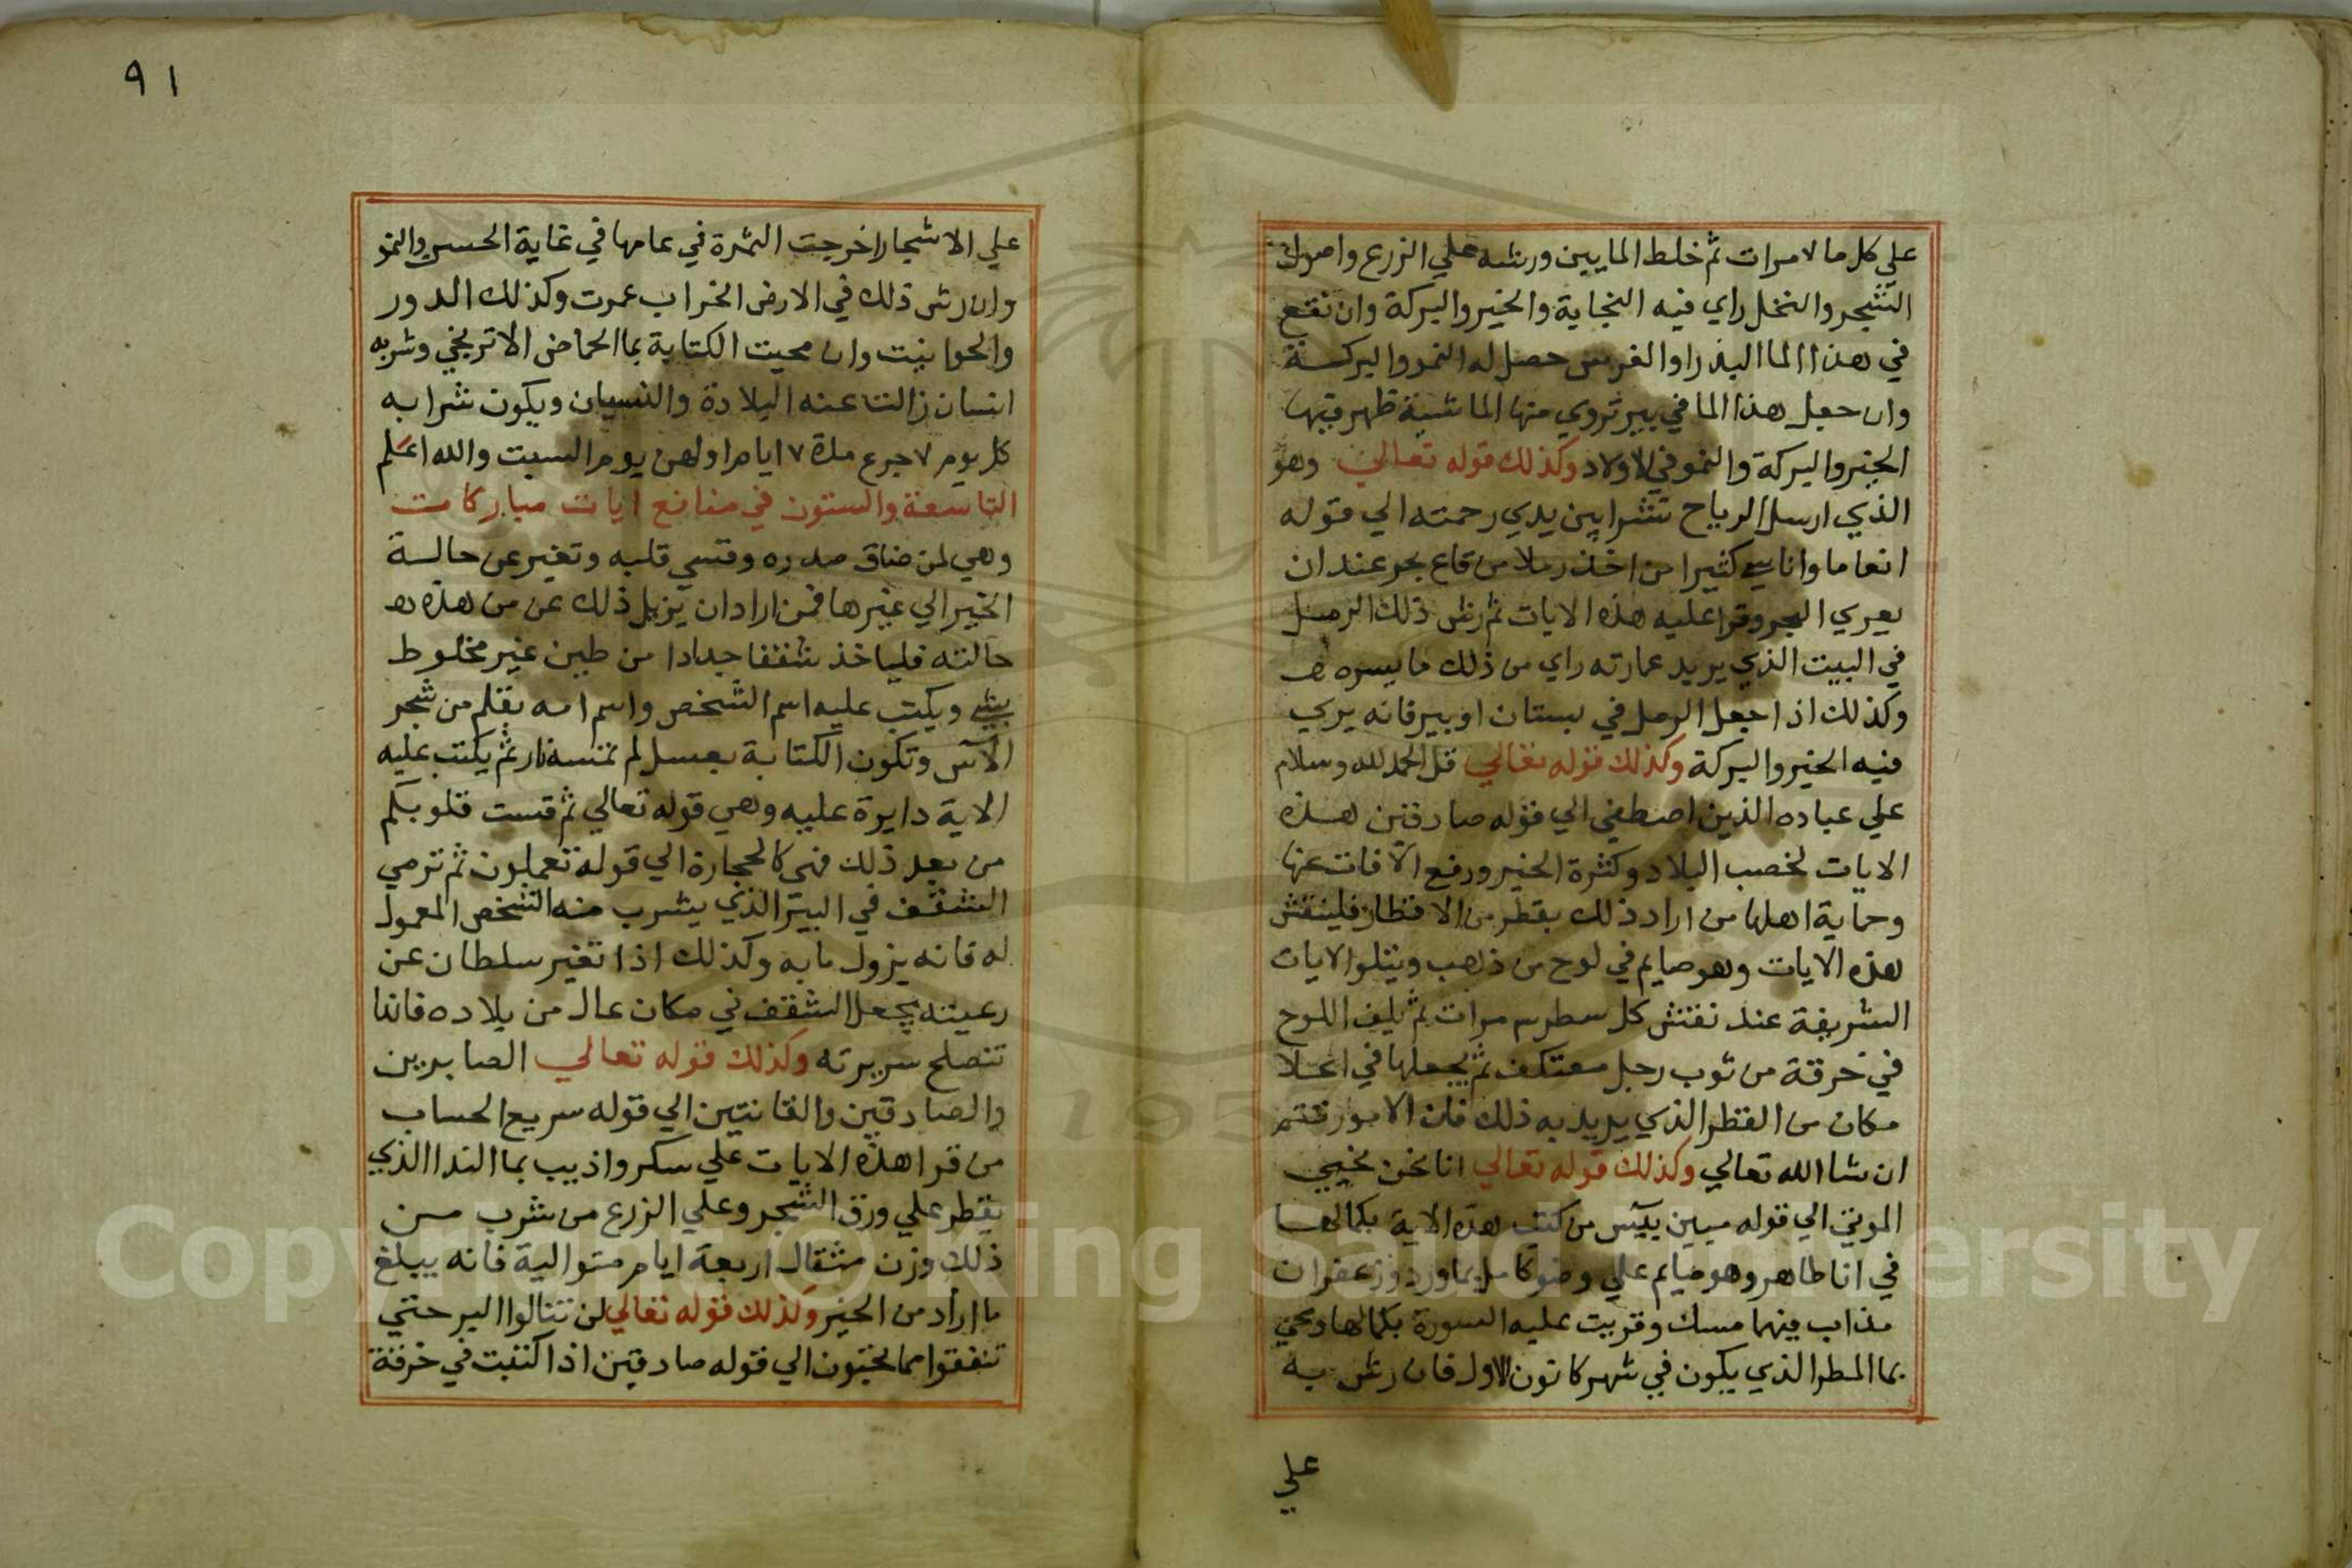 علي كل ما ٧ مرات ثم خلط المايين ورشه علي الزرع واصول
الشجر والنخل راي فيه النجاية والخير والبركة وان نقع
في هذا الما البذر او الغرس حصل له النمو والبركة
وان جعل هذا الما في بير تروي منها الماشية ظهر فيها
الخير والبركة والنمو في الاولاد وكذلك قوله تعالي وهو
الذي ارسل الرياح نشرا بين يدي رحمته الي قوله
انعاما واناسي كثيرا من اخذ رملا من قاع بحر عند ان
يعري البحر وقرا عليه هذه الايات ثم رش ذلك الرمل
في البيت الذي يريد عمارته راي من ذلك ما يسره
وكذلك اذا جعل الرمل في بستان او بير فانه يري
فيه الخير والبركة وكذلك قوله تعالي قل الحمد لله وسلام
علي عباده الذين اصطفي الي قوله صادقين هذه
الايات لخصب البلاد وكثرة الخير ورفع الآفات عنها
وحماية اهلها من اراد ذلك بقطر من الاقطار فلينقش
هذه الايات وهو صايم في لوح من ذهب ويتلوا الايات
الشريفة عند نقش كل سطر ٣ مرات ثم يلف اللوح
في خرقة من ثوب رجل معتكف ثم يجعلها في اعلا
مكان من القطر الذي يريد به ذلك فان الامور تتم
ان شا الله تعالي وكذلك قوله تعالي انا نحن نحيي
الموتي الي قوله مبين ييس من كتب هذه الاية بكمالها
في انا طاهر وهو صايم علي وضو كامل بماورد وزعفران
مذاب فيهما مسك وقريت عليه السورة بكمالها ومحي
بما المطر الذي يكون في شهر كانون الاول فان رش به
علي
٩١
علي الاشجار اخرجت الثمرة في عامها في غاية الحسن والنمو
وان رش ذلك في الارض الخراب عمرت وكذلك الدور
والحوانيت وان محيت الكتابة بما الحماض الاترنجي وشربه
انسان زالت عنه البلادة والنسيان ويكون شرابه
كل يوم ٧ جرع مدة ٧ ايام اولهن يوم السبت والله اعلم
التاسعة والستون في منافع ايات مباركات
وهي لمن ضاق صدره وقسي قلبه وتغير عن حالة
الخير الي غيرها فمن اراد ان يزيل ذلك عن من هذه
حالته فلياخذ شقفا جدادا من طين غير مخلوط
بشي ويكتب عليه اسم الشخص واسم امه بقلم من شجر
الآس وتكون الكتابة بعسل لم تمسه نار ثم يكتب عليه
الاية دايرة عليه وهي قوله تعالي ثم قست قلوبكم
من بعد ذلك فهي كالحجارة الي قوله تعملون ثم ترمي
الشقف في البير الذي يشرب منه الشخص المعمول
له فانه يزول ما به وكذلك اذا تغير سلطان عن
رعيته يجعل الشقف في مكان عال من بلاده فانها
تنصلح سريرته وكذلك قوله تعالي الصابرين
والصادقين والقانتين الي قوله سريع الحساب
من قرا هذه الايات علي سكر واذيب بما الندا الذي
يقطر علي ورق الشجر وعلي الزرع من شرب من
ذلك وزن مثقال اربعة ايام متوالية فانه يبلغ
ما اراد من الخير وكذلك قوله تعالي لن تنالوا البر حتي
تنفقوا مما تحبون الي قوله صادقين اذا كتبت في خرقة